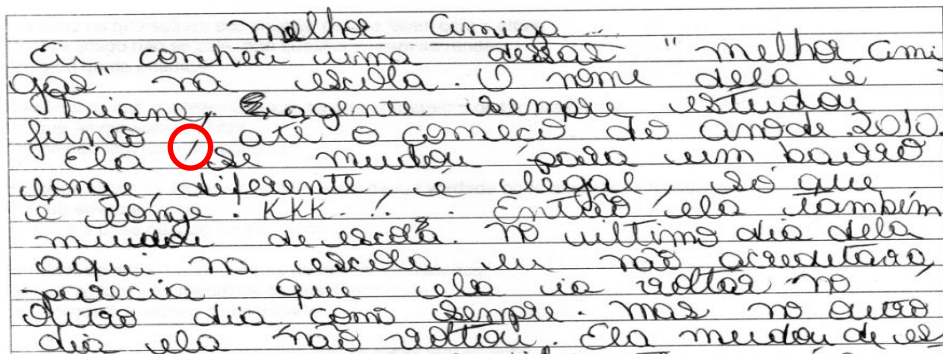 melhor amiga
Eu, conheci uma dessas "melhor ami
gas" na escola. O nome dela é
Diane, agente sempre estudou
junto, até o começo do ano de 2010.
Ela se mudou para um bairro
longe, diferente, é legal, só que
é longe. KKK... Então ela também
mudou de escola. No ultimo dia dela
aqui na escola eu não acreditava,
parecia que ela ia voltar no
outro dia como sempre. mas no outro
dia ela não voltou. Ela mudou de es